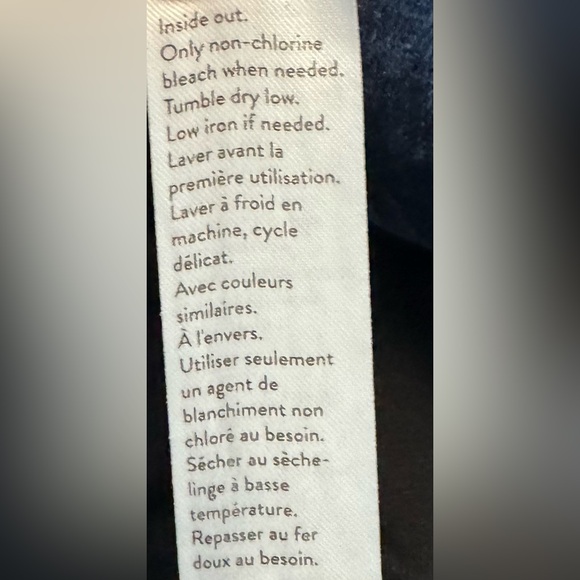 Inside out.
Only non-chlorine
bleach when needed.
Tumble dry low.
Low iron if needed.
Laver avant la
première utilisation.
Laver à froid en
machine, cycle
délicat.
Avec couleurs
similaires.
À l'envers.
Utiliser seulement
un agent de
blanchiment non
chloré au besoin.
Sécher au sèche-
linge à basse
température.
Repasser au fer
doux au besoin.